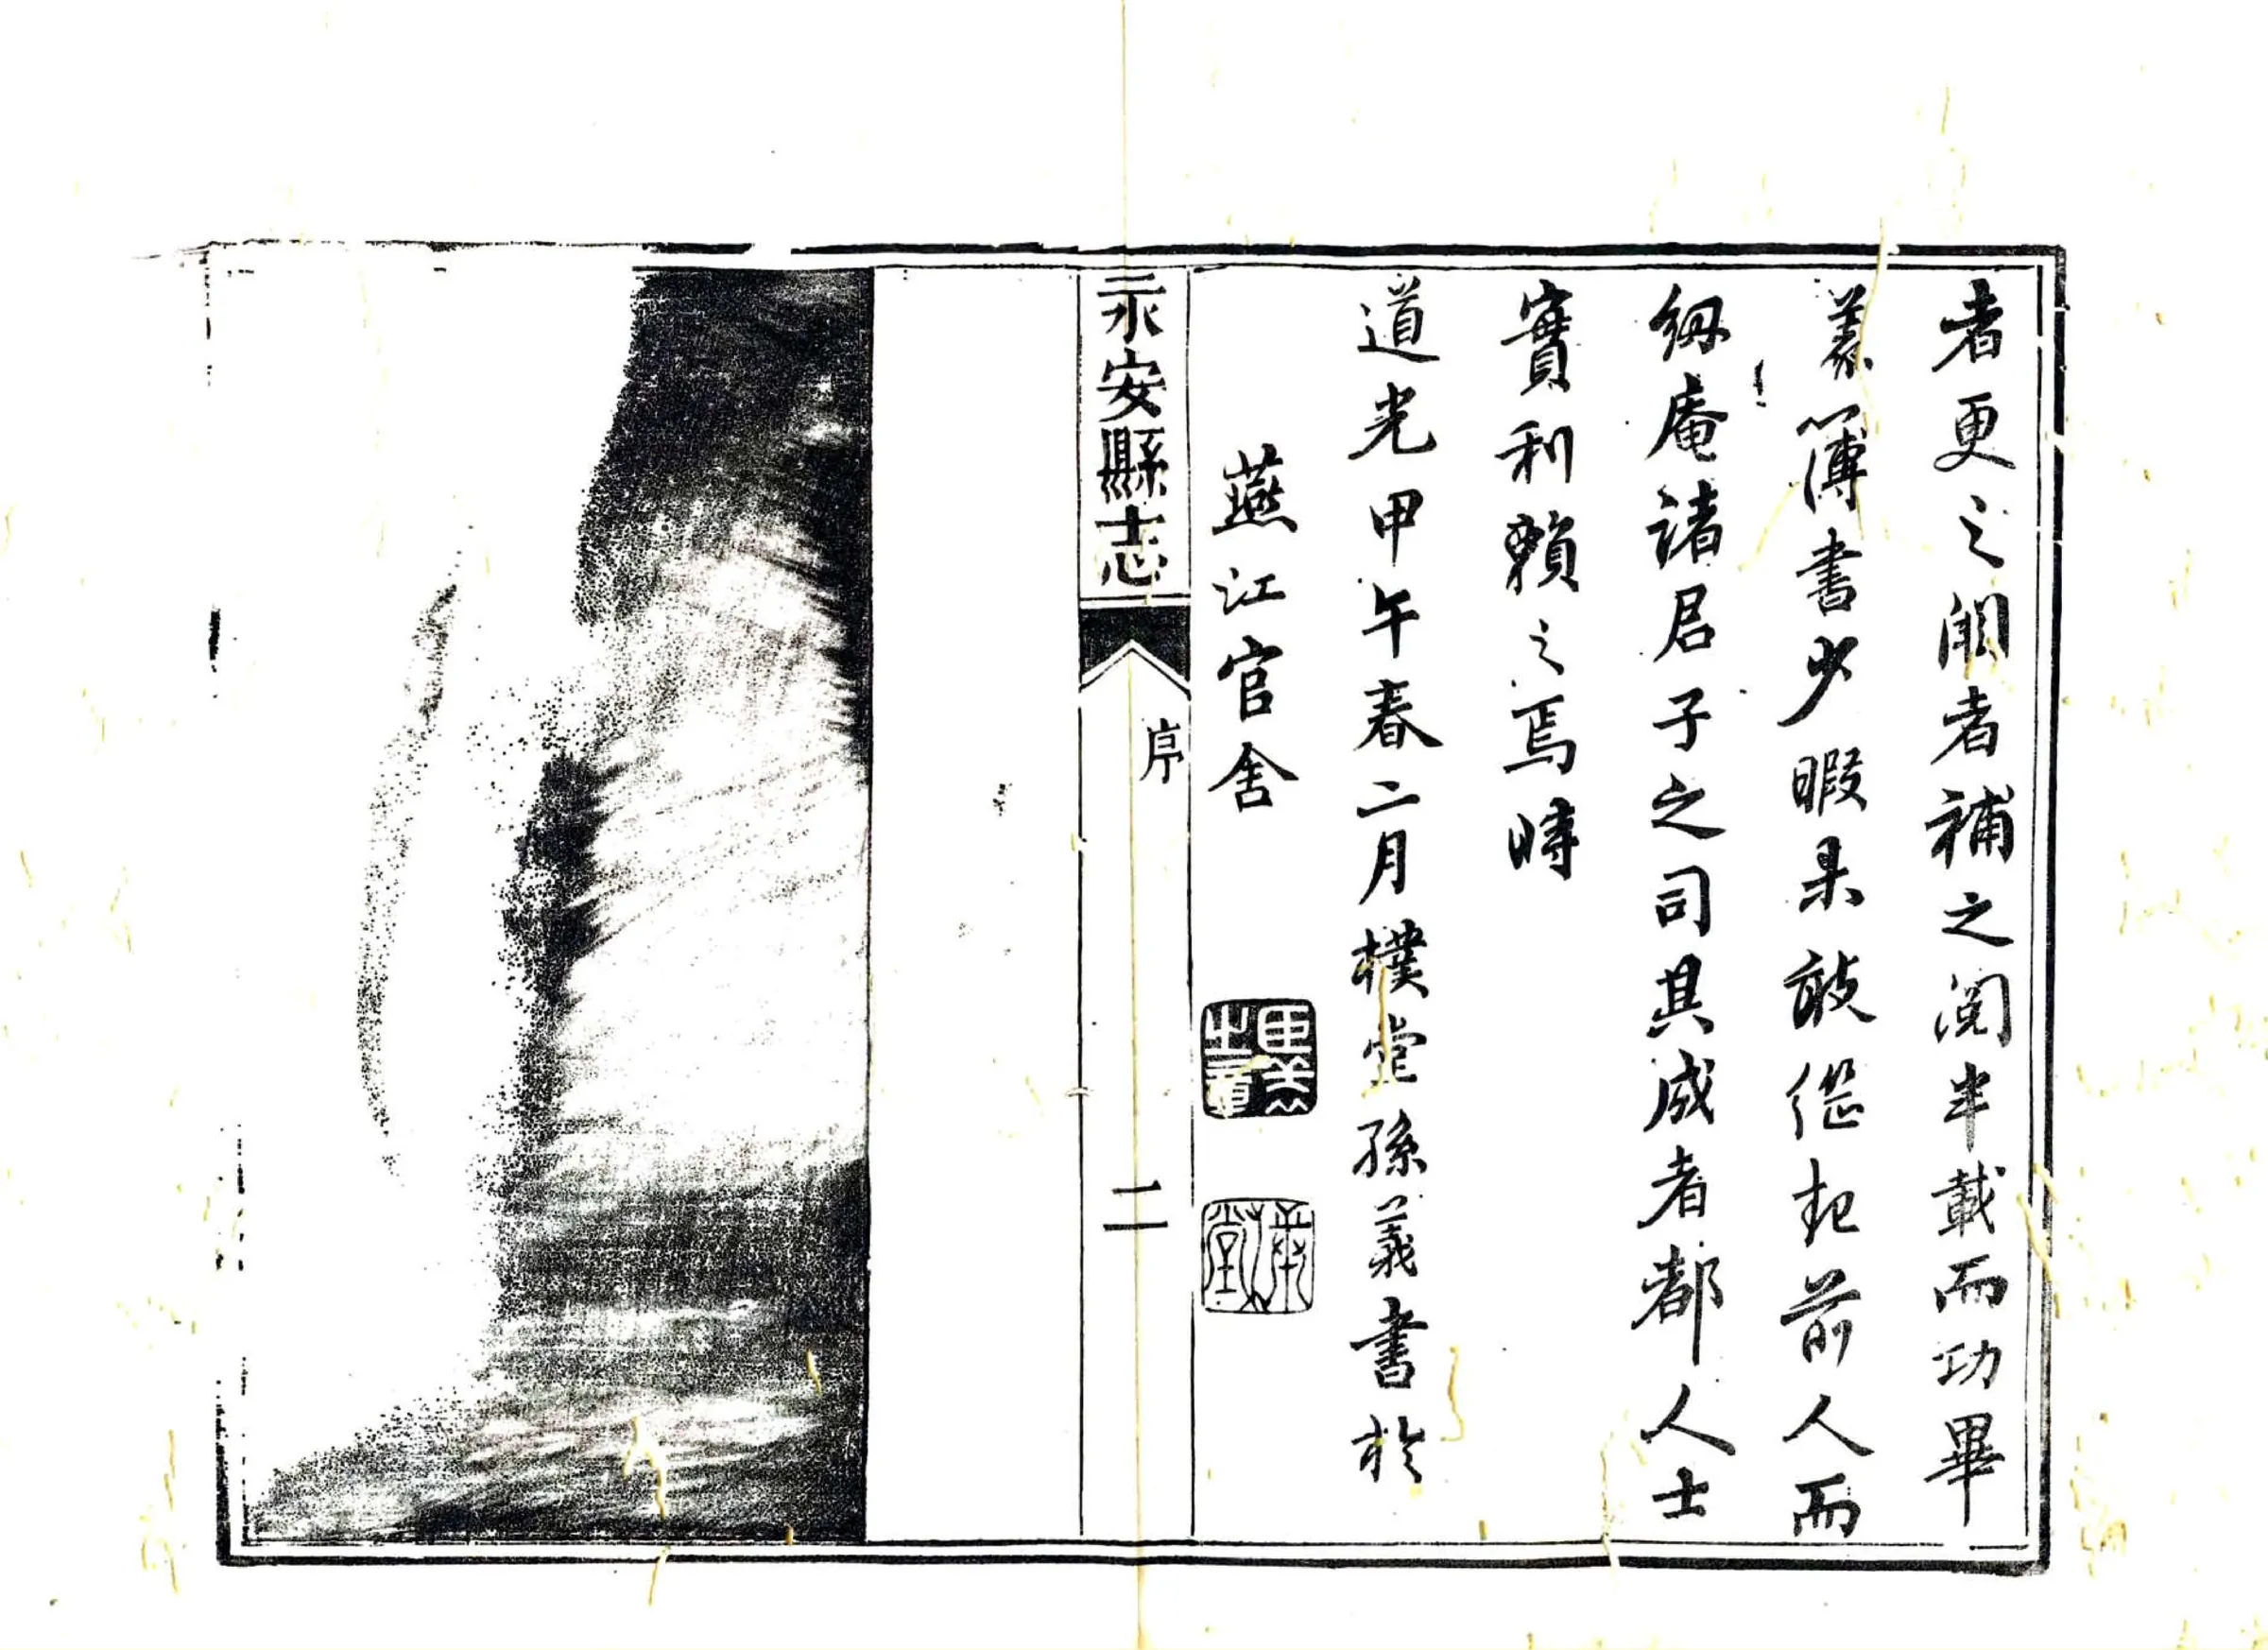 者更之闕者補之閱半載而功畢
義簿書少暇果敢從起前人而
紉庵諸君子之司其成者都人士
實利賴之焉時
道光甲午春二月樸堂孫義書於
燕江官舍
永安縣志
序
二